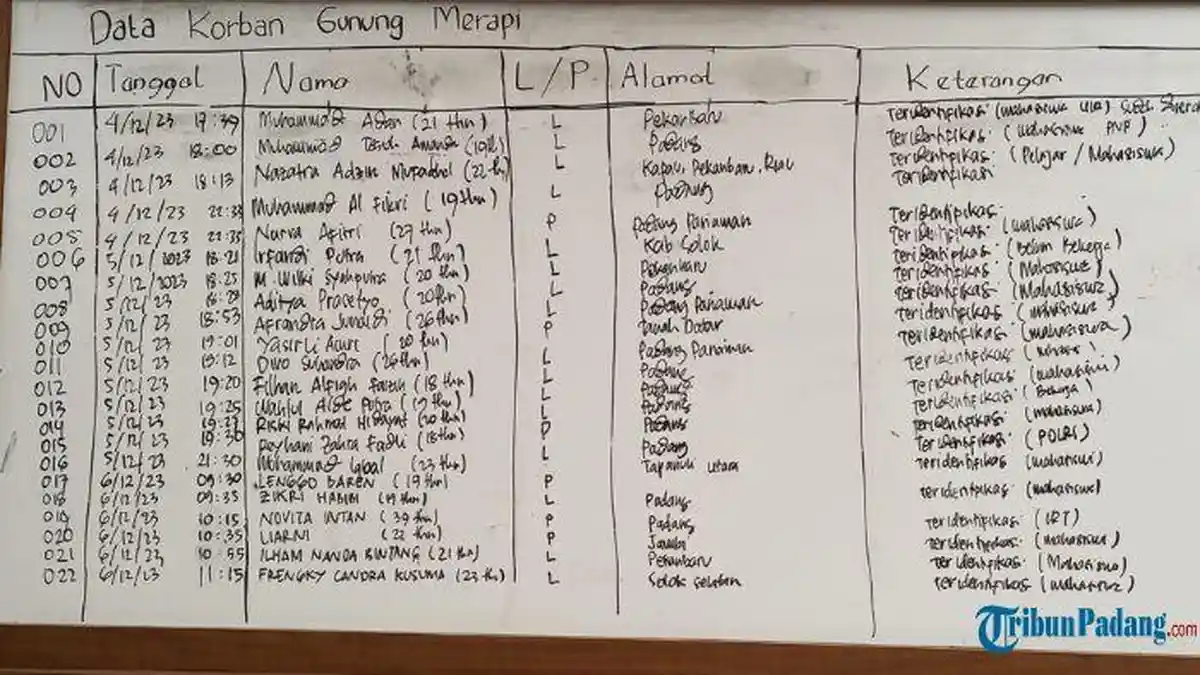 Data Korban Gunung Merapi
NO Tanggal Nama L/P Alamat Keterangan
001 4/12/23 17:39 Muhammad (21 thn) L Pekanbaru Teridentifikasi (mahasiswa UIR)
002 4/12/23 18:00 Muhammad L Padang Teridentifikasi (mahasiswa PNP)
003 4/12/23 18:13 Nazatra Adzin Mufadhol (22 th) L Kapau, Pekanbaru, Riau Teridentifikasi (Pelajar / Mahasiswa)
004 4/12/23 Muhammad Al Fikri (19 thn) L Padang Teridentifikasi
005 4/12/23 22:35 Nurva Afitri (27 thn) P Padang Pariaman Teridentifikasi
006 5/12/2023 18:21 Irfandi Putra (21 thn) L Kab Solok Teridentifikasi (mahasiswa)
007 5/12/2023 18:25 M. Wilki Syahputra (20 thn) L Pekanbaru Teridentifikasi (Belum Bekerja)
008 5/12/23 Aditya Pracetyo (20 thn) L Padang Teridentifikasi (Mahasiswa)
009 5/12/23 18:53 Afrandra Junaidi (26 thn) L Padang Pariaman Teridentifikasi (Mahasiswa)
010 5/12/23 19:01 Yasirli (20 thn) P Tanah Datar Teridentifikasi (mahasiswa)
011 5/12/23 19:12 (26 thn) L Padang Pariaman Teridentifikasi (mahasiswa)
012 5/12/23 19:20 Filhan Alfiqh Faizin (18 thn) L Padang Teridentifikasi
013 5/12/23 19:25 Wahlul Alde Putra (19 thn) L Padang Teridentifikasi (mahasiswa)
014 5/12/23 19:27 Riski Rahmat Hidayat (20 thn) L Padang Teridentifikasi (Bekerja)
015 5/12/23 19:30 Reyhani Zahra Fadli (18 thn) P Padang Teridentifikasi (mahasiswa)
016 5/12/23 21:30 Muhammad Iqbal (23 thn) L Padang Teridentifikasi (POLRI)
017 6/12/23 09:30 LENGGO BAREN (19 thn) P Tapanuli Utara Teridentifikasi (mahasiswi)
018 6/12/23 09:35 ZIKRI HABIBI (19 thn) L Padang Teridentifikasi (mahasiswa)
019 6/12/23 10:15 NOVITA INTAN (39 thn) P Padang Teridentifikasi (IRT)
020 6/12/23 10:35 LIARNI (22 thn) P Jambi Teridentifikasi (mahasiswi)
021 6/12/23 10:55 ILHAM NANDA BINTANG (21 thn) L Pekanbaru Teridentifikasi (Mahasiswa)
022 6/12/23 11:15 FRENGKY CANDRA KUSUMA (23 thn) L Solok Selatan Teridentifikasi (mahasiswa)
TribunPadang.com